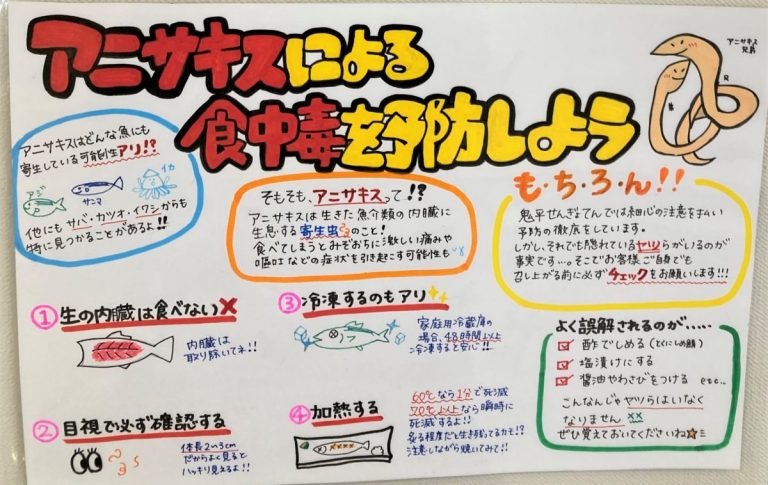 アニサキスによる
食中毒を予防しよう
アニサキス
兄弟
アニサキスはどんな魚にも
寄生している可能性アリ!?
アジ
サンマ
イカ
他にもサバ・カツオ・イワシからも
特に見つかることがあるよ!!
そもそも、アニサキスって!?
アニサキスは生きた魚介類の内臓に
生息する寄生虫のこと!
食べてしまうとみぞおちに激しい痛みや
嘔吐などの症状を引き起こす可能性も
も・ち・ろ・ん!!
鬼平せんぎてんでは細心の注意をはらい
予防の徹底をしています。
しかし、それでも隠れているヤツらがいるのが
事実です…。そこでお客様ご自身でも
召し上がる前に必ずチェックをお願いします!!!
① 生の内臓は食べない✕
内臓は
取り除いてネ!!
② 目視で必ず確認する
体長2〜3cm
だからよく見ると
ハッキリ見えるよ!!
③ 冷凍するのもアリ
家庭用冷蔵庫の
場合、48時間以上
冷凍すると安心!!
④ 加熱する
60℃なら1分で死滅
70℃以上なら瞬時に
死滅するよ!!
炙る程度だと生き残ってるカモ!?
注意しながら焼いてみて!!
よく誤解されるのが.....
☑ 酢でしめる(とくにしめ鯖)
☑ 塩漬けにする
☑ 醤油やわさびをつける etc...
こんなんじゃヤツらはいなく
なりません××
ぜひ覚えておいてくださいね☆ミ